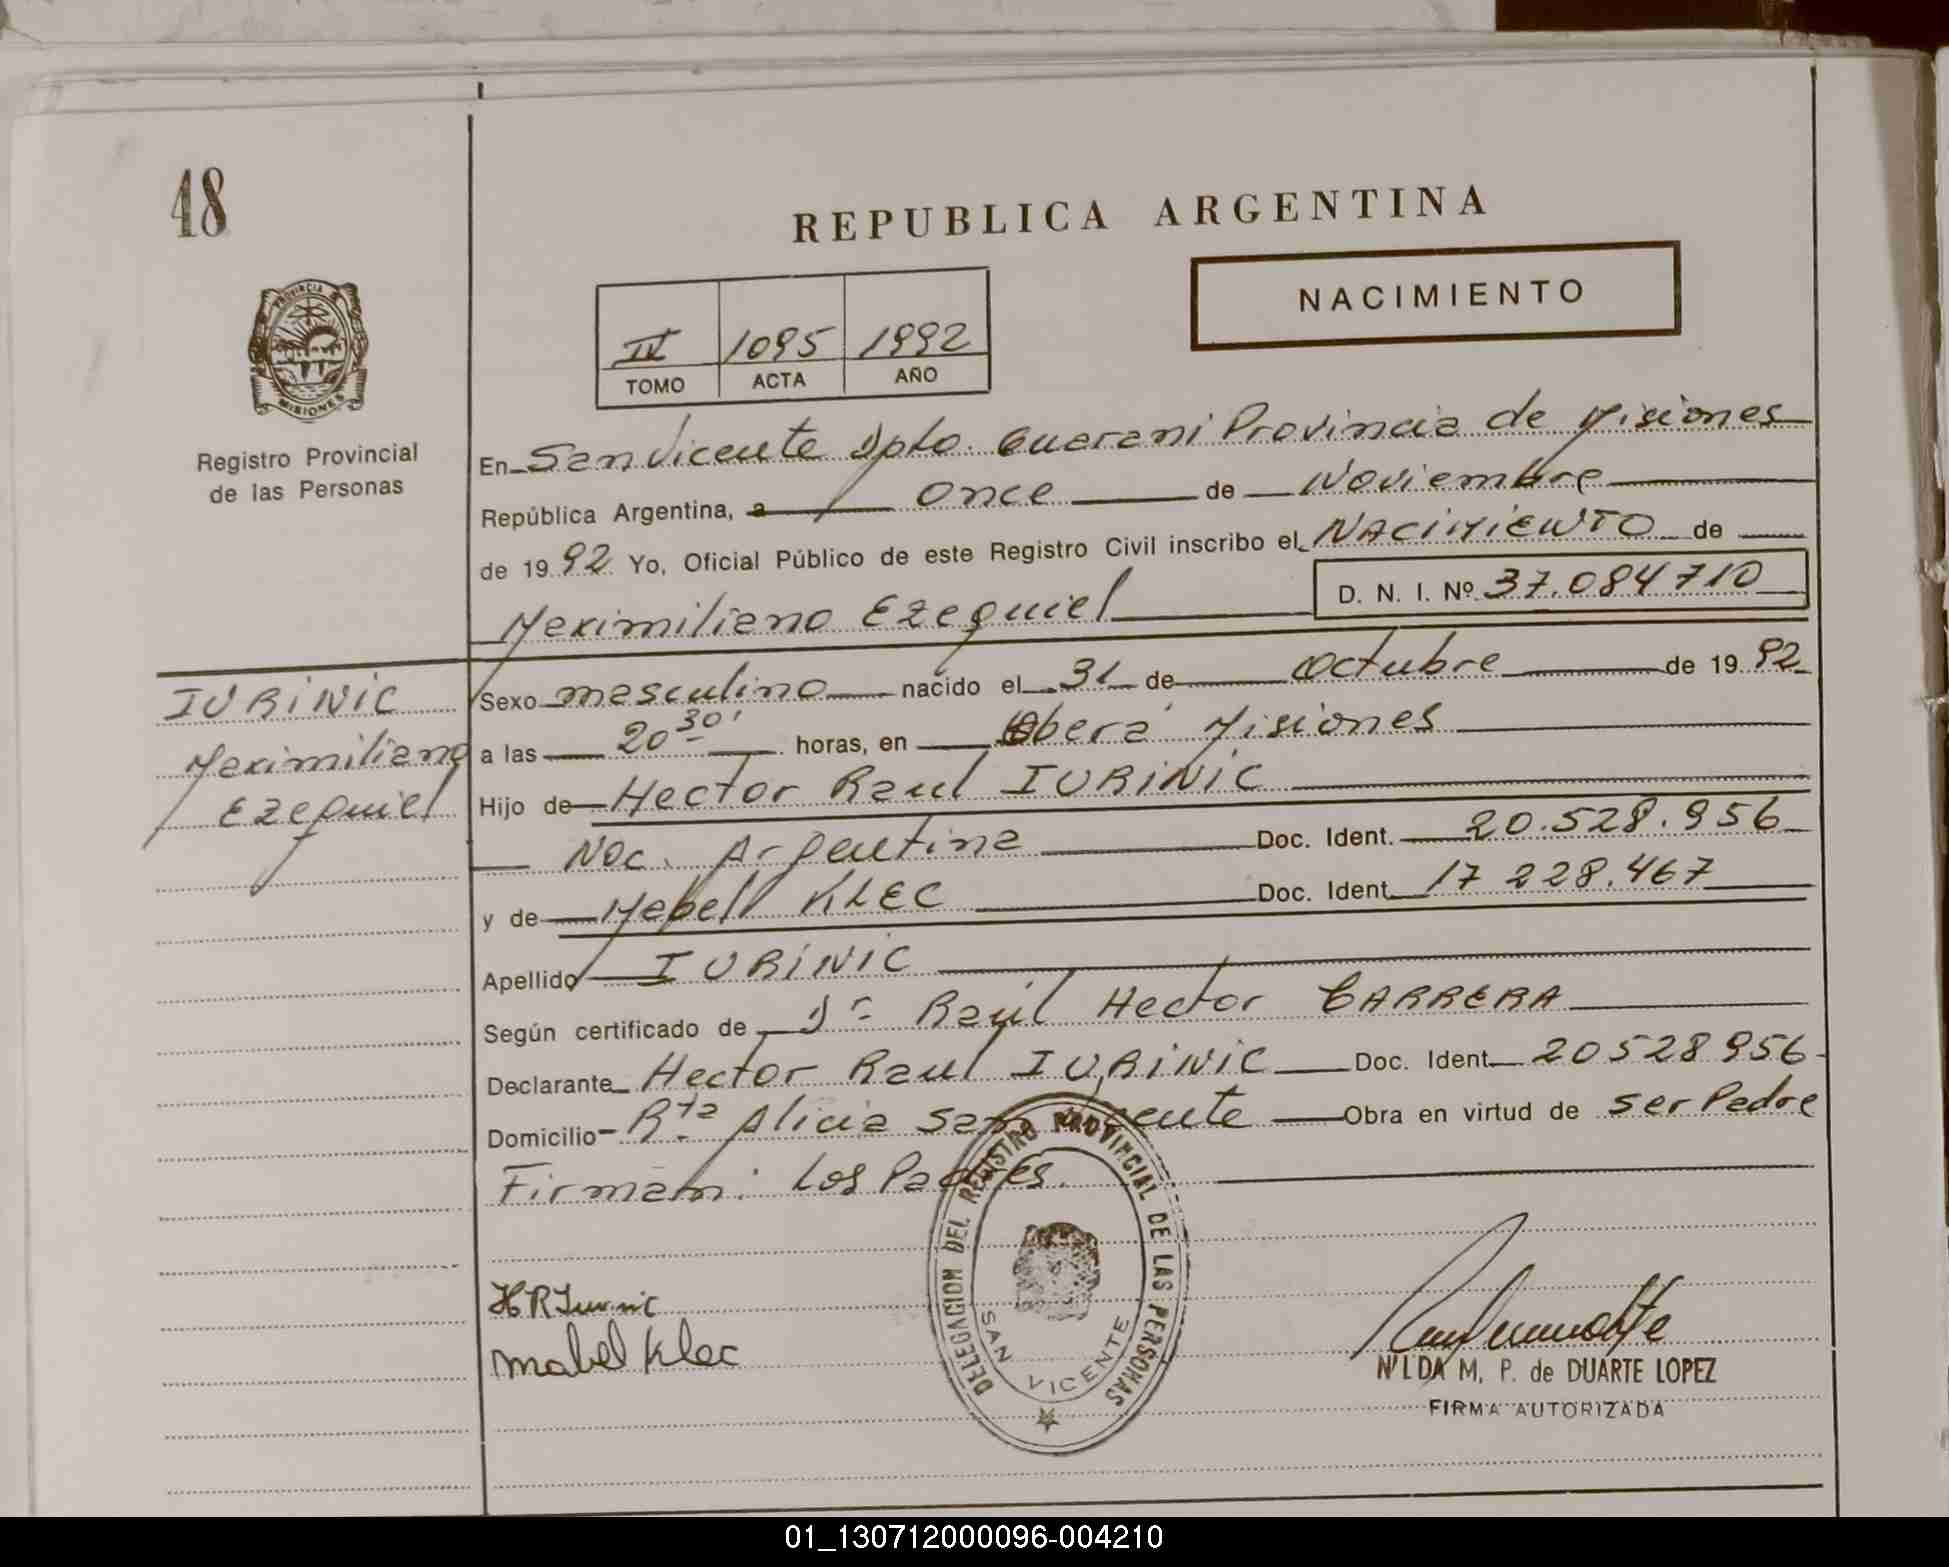 48
REPUBLICA ARGENTINA
NACIMIENTO
IV 1095 1992
TOMO ACTA AÑO
PROVINCIA DE
MISIONES
Registro Provincial
de las Personas
En San Vicente Dpto. Guarani Provincia de Misiones
República Argentina, a once de Noviembre
de 1992 Yo, Oficial Público de este Registro Civil inscribo el NACIMIENTO de
Maximiliano Ezequiel D. N. I. Nº 37.084710
IURINIC
Maximiliano
Ezequiel
Sexo masculino nacido el 31 de Octubre de 1992
a las 20 30' horas, en Oberá Misiones
Hijo de Hector Raul IURINIC
Nac. Argentina Doc. Ident. 20.528.956
y de Mabell KLEC Doc. Ident 17 228.467
Apellido IURINIC
Según certificado de Dr Raúl Hector CARRERA
Declarante Hector Raul IURINIC Doc. Ident 20528956
Domicilio Rta Alicia San Vicente Obra en virtud de ser Padre
Firman: Los Padres.
DELEGACION DEL REGISTRO PROVINCIAL DE LAS PERSONAS
SAN VICENTE
H R Iurinic
Mabel Klec
NILDA M. P. de DUARTE LOPEZ
FIRMA AUTORIZADA
01_130712000096-004210